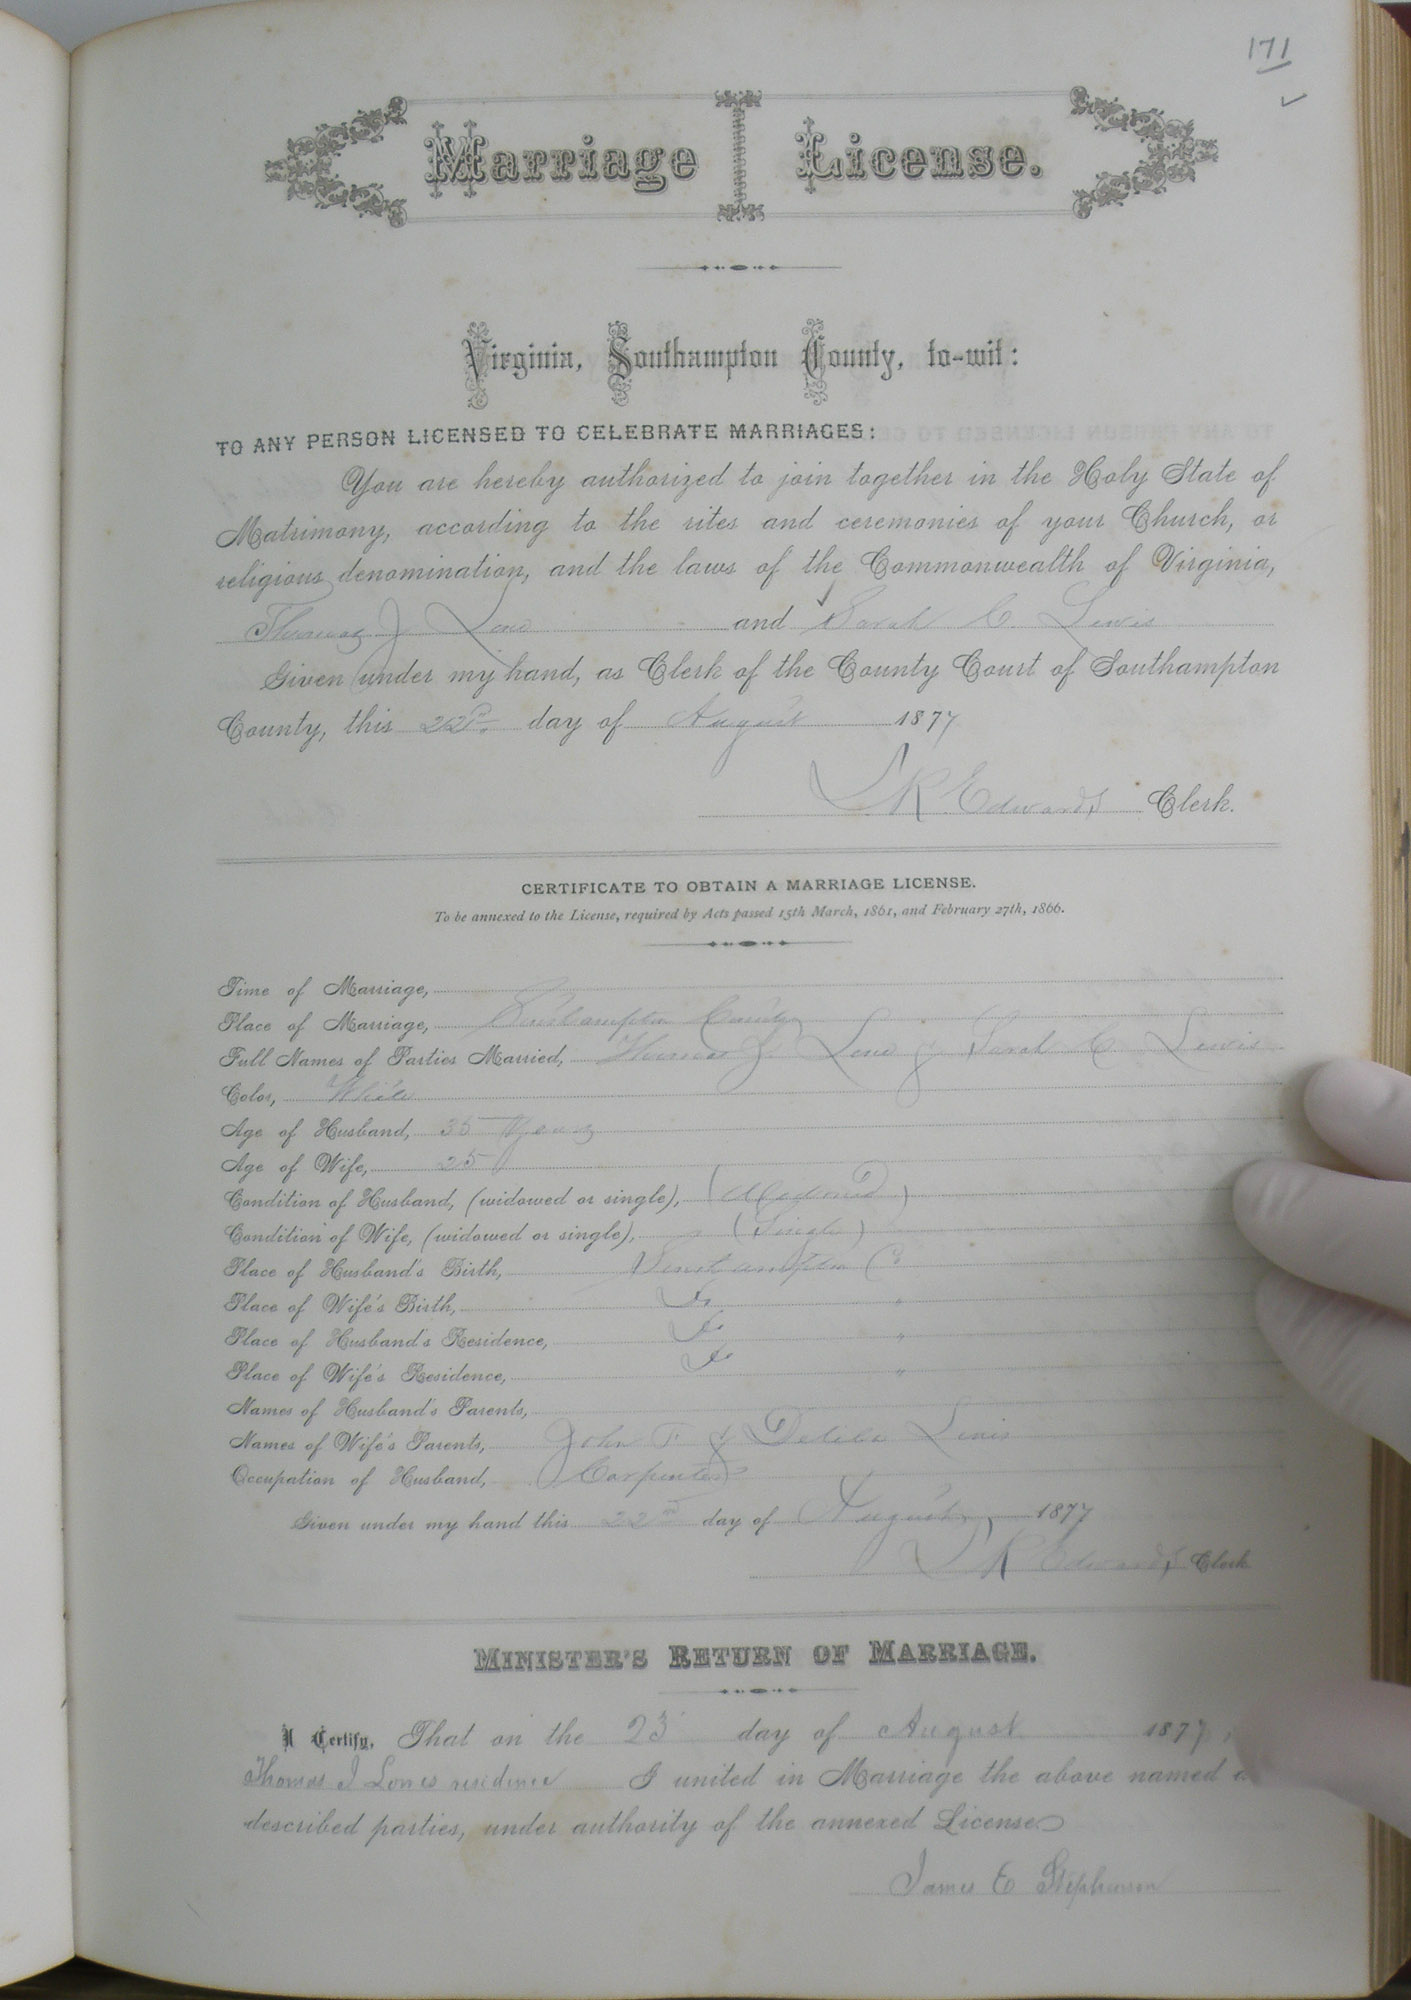 171
Marriage License.
Virginia, Southampton County, to-wit:
TO ANY PERSON LICENSED TO CELEBRATE MARRIAGES:
You are hereby authorized to join together in the Holy State of
Matrimony, according to the rites and ceremonies of your Church, or
religious denomination, and the laws of the Commonwealth of Virginia,
Thomas J and Sarah C. Lewis
Given under my hand, as Clerk of the County Court of Southampton
County, this 22d day of August 1877
L R Edwards Clerk.
CERTIFICATE TO OBTAIN A MARRIAGE LICENSE.
To be annexed to the License, required by Acts passed 15th March, 1861, and February 27th, 1866.
Time of Marriage,
Place of Marriage, Southampton County
Full Names of Parties Married, Thomas J. & Sarah C. Lewis
Color, White
Age of Husband, 35 Years
Age of Wife, 25
Condition of Husband, (widowed or single), (Widowed)
Condition of Wife, (widowed or single), (Single)
Place of Husband's Birth, Southampton Co
Place of Wife's Birth, Do "
Place of Husband's Residence, Do "
Place of Wife's Residence, Do "
Names of Husband's Parents,
Names of Wife's Parents, John T. & Delila Lewis
Occupation of Husband, Carpenter
Given under my hand this 22nd day of August, 1877
L R Edwards, Clerk
MINISTER'S RETURN OF MARRIAGE.
I Certify, That on the 23 day of August 1877,
Thomas J residence I united in Marriage the above named
described parties, under authority of the annexed License
James E Stephenson